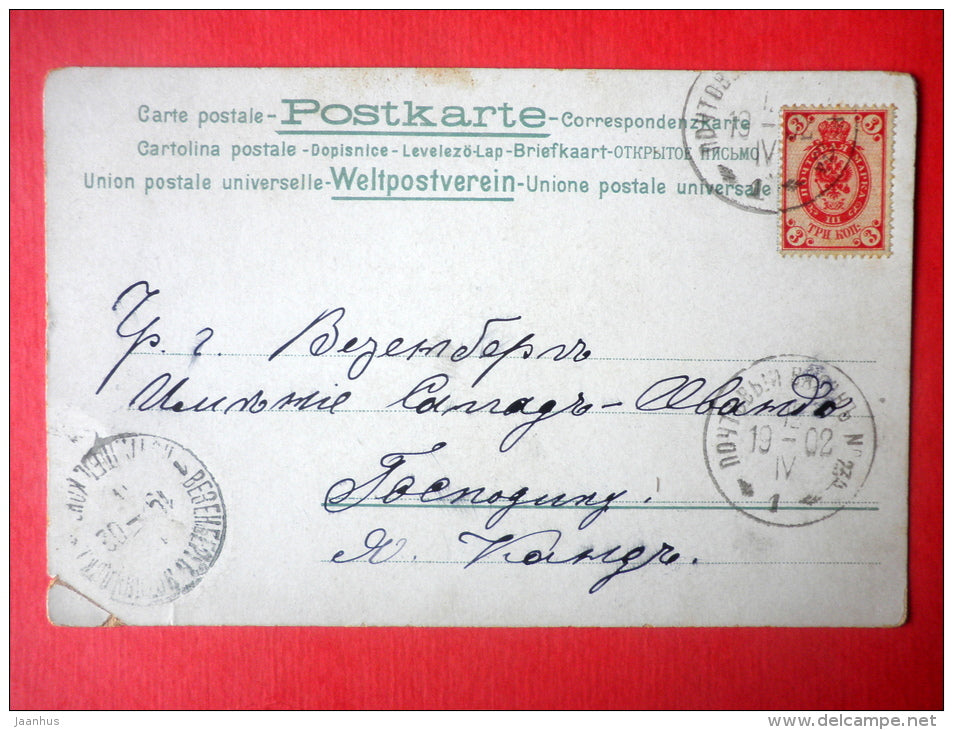 Carte postale-Postkarte-Correspondenzkarte
Cartolina postale-Dopisnice-Levelező-Lap-Briefkaart-ОТКРЫТОЕ ПИСЬМО
Union postale universelle-Weltpostverein-Unione postale universale
ПОЧТОВ
19 02
IV
1
3 3
ПОЧТОВАЯ МАРКА
III
3 3
ТРИ КОП.
Чр. г. Везенбергъ
Имѣніе
Господину
Я. Кандъ.
ПОЧТОВЫЙ ВАГОНЪ №
12
19-02
IV
1
ВЕЗЕНБЕРГЪ
Jaanhus
www.delcampe.net